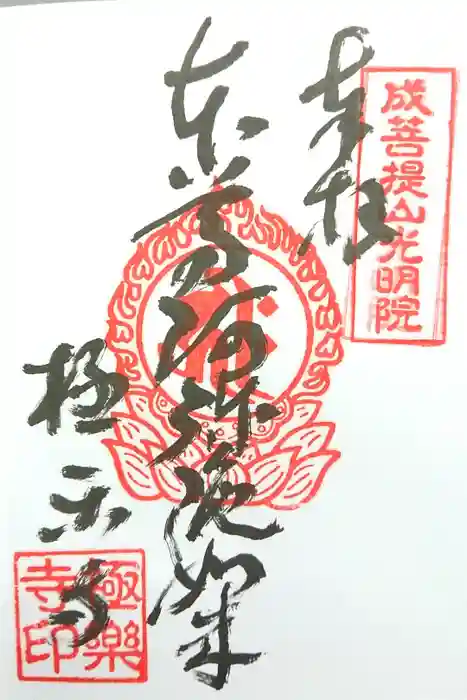 成菩提山光明院
奉拝
本尊阿弥陀如来
極楽寺
極樂
寺印